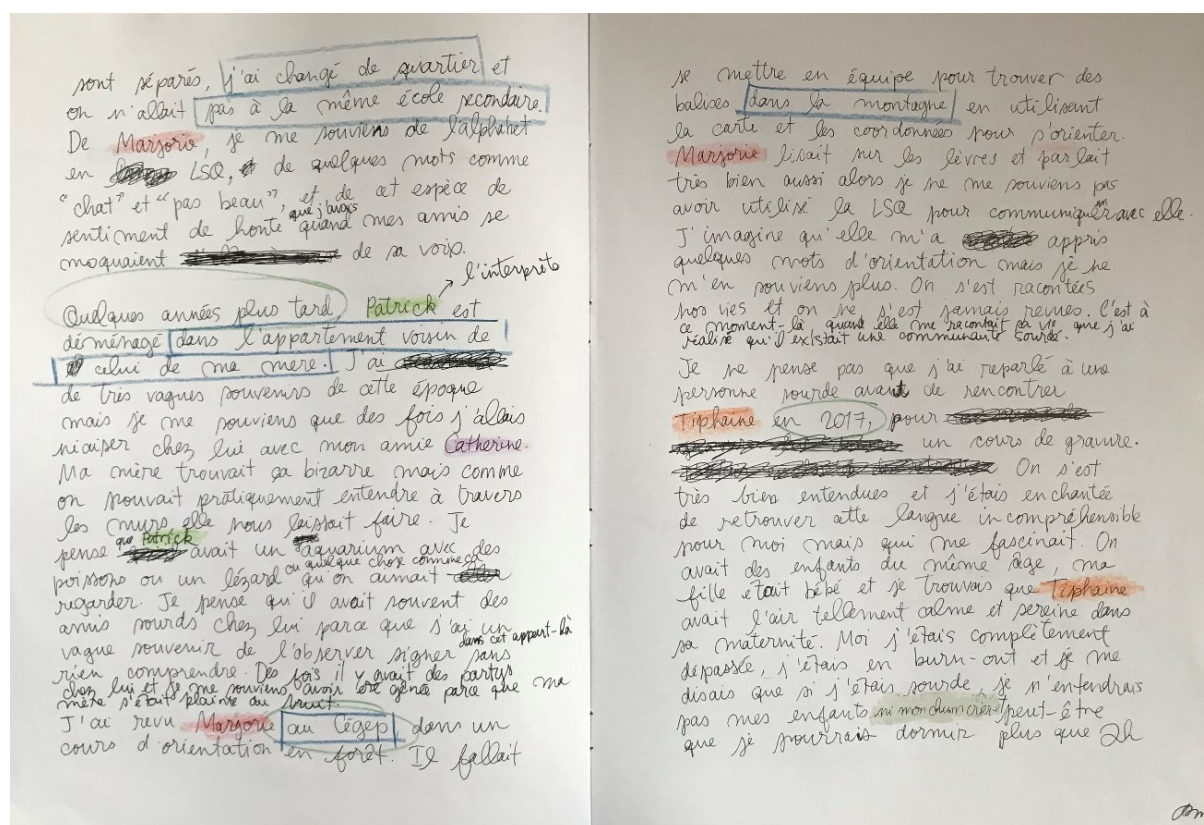 sont séparés, j'ai changé de quartier et
on n'allait pas à la même école secondaire.
De Marjorie, je me souviens de l'alphabet
en LSQ, de quelques mots comme
"chat" et "pas beau", et de cet espèce de
sentiment de honte que j'avais quand mes amis se
moquaient de sa voix.
l'interprète
Quelques années plus tard Patrick est
déménagé dans l'appartement voisin de
celui de ma mère. J'ai
de très vagues souvenirs de cette époque
mais je me souviens que des fois j'allais
niaiser chez lui avec mon amie Catherine.
Ma mère trouvait ça bizarre mais comme
on pouvait pratiquement entendre à travers
les murs elle nous laissait faire. Je
pense que Patrick avait un aquarium avec des
poissons ou un lézard ou quelque chose comme ça qu'on aimait
regarder. Je pense qu'il avait souvent des
amis sourds chez lui parce que j'ai un
vague souvenir de l'observer signer dans cet appart-là sans
rien comprendre. Des fois il y avait des partys
chez lui et je me souviens avoir été gênée parce que ma
mère s'était plainte du bruit.
J'ai revu Marjorie au Cégep dans un
cours d'orientation en forêt. Il fallait
se mettre en équipe pour trouver des
balises dans la montagne en utilisant
la carte et les coordonnées pour s'orienter.
Marjorie lisait sur les lèvres et parlait
très bien aussi alors je ne me souviens pas
avoir utilisé la LSQ pour communiquer avec elle.
J'imagine qu'elle m'a appris
quelques mots d'orientation mais je ne
m'en souviens plus. On s'est racontées
nos vies et on ne s'est jamais revues. C'est à
ce moment-là quand elle me racontait sa vie que j'ai
réalisé qu'il existait une communauté sourde.
Je ne pense pas que j'ai reparlé à une
personne sourde avant de rencontrer
Tiphaine en 2017, pour
un cours de gravure.
On s'est
très bien entendues et j'étais enchantée
de retrouver cette langue incompréhensible
pour moi mais qui me fascinait. On
avait des enfants du même âge, ma
fille était bébé et je trouvais que Tiphaine
avait l'air tellement calme et sereine dans
sa maternité. Moi j'étais complètement
dépassée, j'étais en burn-out et je me
disais que si j'étais sourde je n'entendrais
pas mes enfants ni mon chum crier et peut-être
que je pourrais dormir plus que 2h